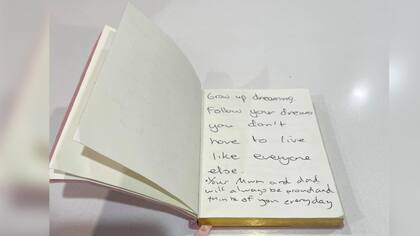 Grow up dreaming.
Follow your dreams
you don't
have to live
like everyone
else.
• Your Mum and dad
will always be proud and
think of you everyday